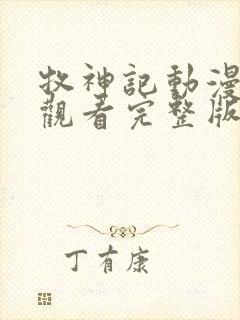 牧神記動漫
觀看完整版
丁有康